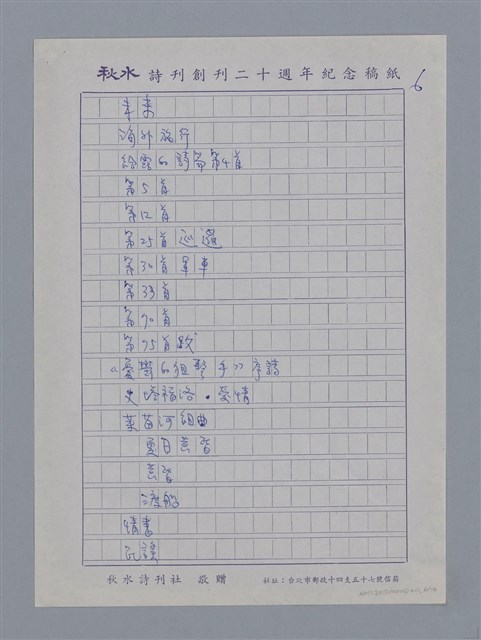 秋水 詩刊創刊二十週年紀念稿紙
6
未來
海外旅行
給雲的詩篇第4首
第5首
第12首
第25首 巡邏
第30首 單車
第33首
第90首
第95首 跋
《憂鬱的狙擊手》序詩
史塔福洛·愛情
萊茵河組曲
夏日黃昏
黃昏
渡船
情書
民謠
秋水詩刊社 敬贈
社址：台北市郵政十四支五十七號信箱